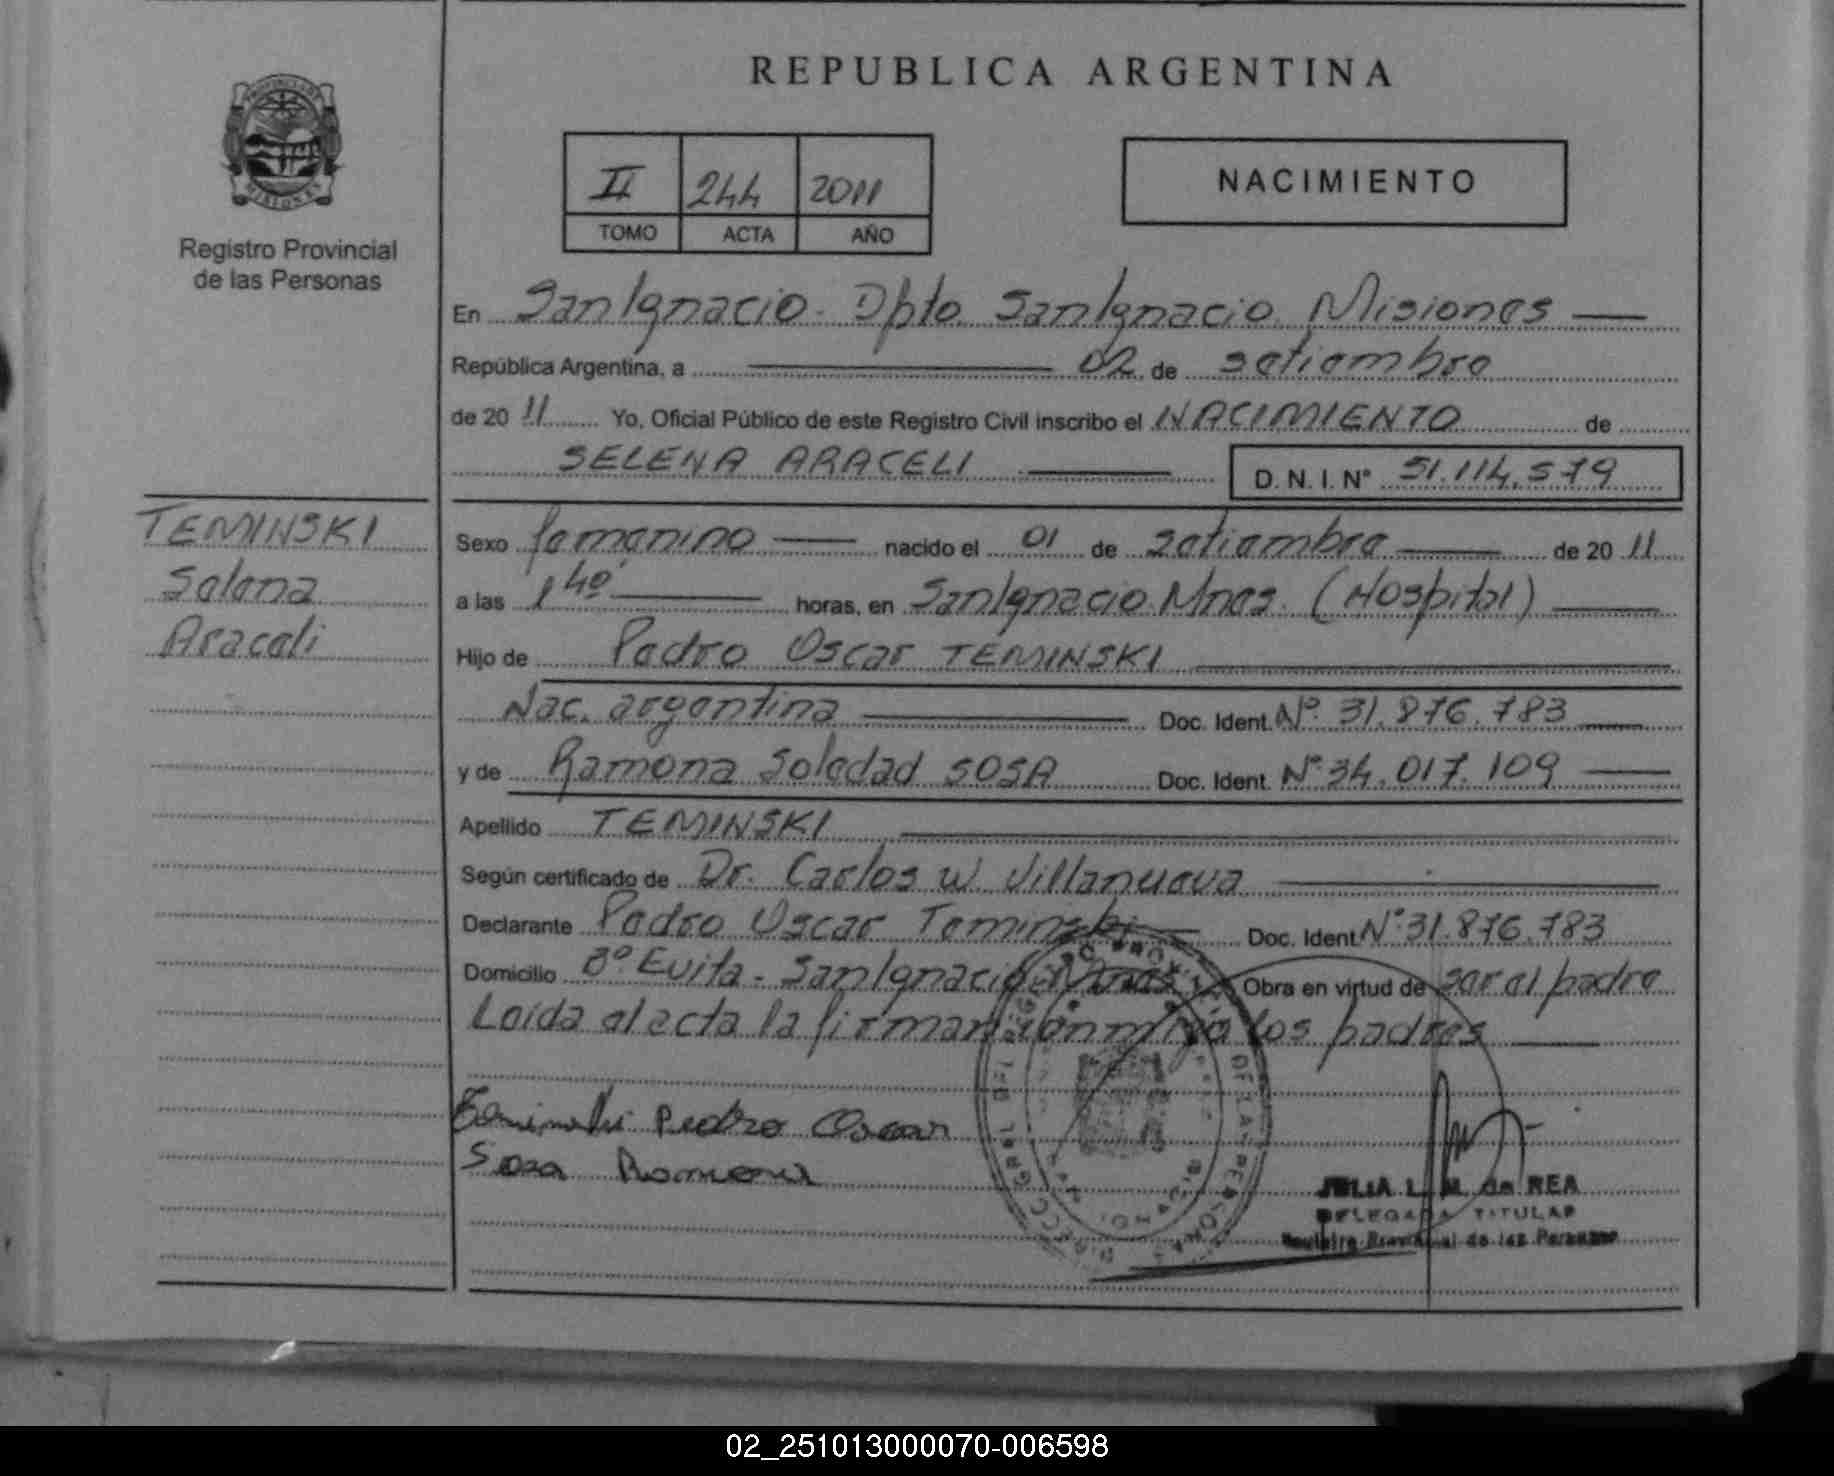 REPUBLICA ARGENTINA
PROVINCIA DE
MISIONES
Registro Provincial
de las Personas
II 244 2011
TOMO ACTA AÑO
NACIMIENTO
En San Ignacio. Dpto. San Ignacio. Misiones
República Argentina, a 02 de setiembre
de 20 11 Yo, Oficial Público de este Registro Civil inscribo el NACIMIENTO de
SELENA ARACELI D.N.I. N° 51.114.579
TEMINSKI
Selena
Araceli
Sexo femenino nacido el 01 de setiembre de 20 11
a las 1 40' horas, en San Ignacio Mnes. (Hospital)
Hijo de Pedro Oscar TEMINSKI
Nac. argentina Doc. Ident. N°. 31.876.783
y de Ramona Soledad SOSA Doc. Ident. N° 34.017.109
Apellido TEMINSKI
Según certificado de Dr. Carlos W Villanueva
Declarante Pedro Oscar Teminski Doc. Ident. N° 31.876.783
Domicilio B° Evita - San Ignacio Mnes Obra en virtud de ser el padre
Leída el acta la firman conmigo los padres
Teminski Pedro Oscar
Sosa Ramona
JULIA L. M. de REA
DELEGADA TITULAR
Registro Provincial de las Personas
02_251013000070-006598